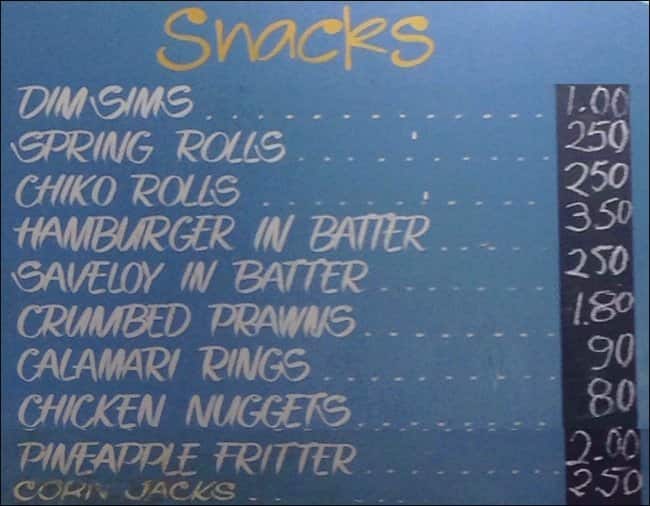 Snacks
DIM SIMS 1.00
SPRING ROLLS 250
CHIKO ROLLS 250
HAMBURGER IN BATTER 350
SAVELOY IN BATTER 250
CRUMBED PRAWNS 1.80
CALAMARI RINGS 90
CHICKEN NUGGETS 80
PINEAPPLE FRITTER 2.00
CORN JACKS 250